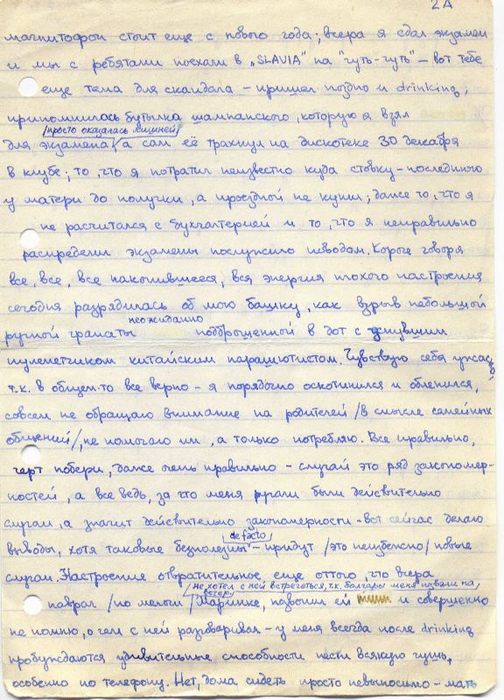 2А
магнитофон стоит еще с нового года; вчера я сдал экзамен
и мы с ребятами поехали в „SLAVIA" на "чуть-чуть" – вот тебе
еще тема для скандала – пришел поздно и drinking;
припомнилась бутылка шампанского, которую я взял
/просто оказалась лишней/
для экзамена, а сам её трахнул на дискотеке 30 декабря
в клубе; то, что я потратил неизвестно куда ставку – последнюю
у матери до получки, а проездной не купил; даже то, что я
не расчитался с бухгалтерией и то, что я неправильно
распределил экзамены послужило поводом. Короче говоря
все, все, все накопившееся, вся энергия плохого настроения
сегодня разрядилась об мою башку, как взрыв небольшой
неожиданно
ручной гранаты подброшенной в дот с уснувшим
пулеметчиком китайским парашютистом. Чувствую себя ужасно
т.к. в общем-то все верно – я порядочно оскотинился и обленился,
совсем не обращаю внимание на родителей /в смысле семейных
общений/, не помогаю им, а только потребляю. Все правильно,
черт побери, даже очень правильно – случай это ряд закономер-
ностей, а все ведь, за что меня ругали были действительно
случаи, а значит действительно закономерности – вот сейчас делаю
defacto
выводы, хотя таковые бесполезны – придут /это неизбежно/ новые
случаи. Настроение отвратительное еще оттого, что вчера
не хотел с ней встречаться, т.к. болгары меня позвали на
вечер
наврал /по мелочи/ Маринке, позвонил ей и совершенно
не помню, о чем с ней разговаривал – у меня всегда после drinking
пробуждаются удивительные способности нести всякую чушь,
особенно по телефону. Нет, дома сидеть просто невыносимо – мать